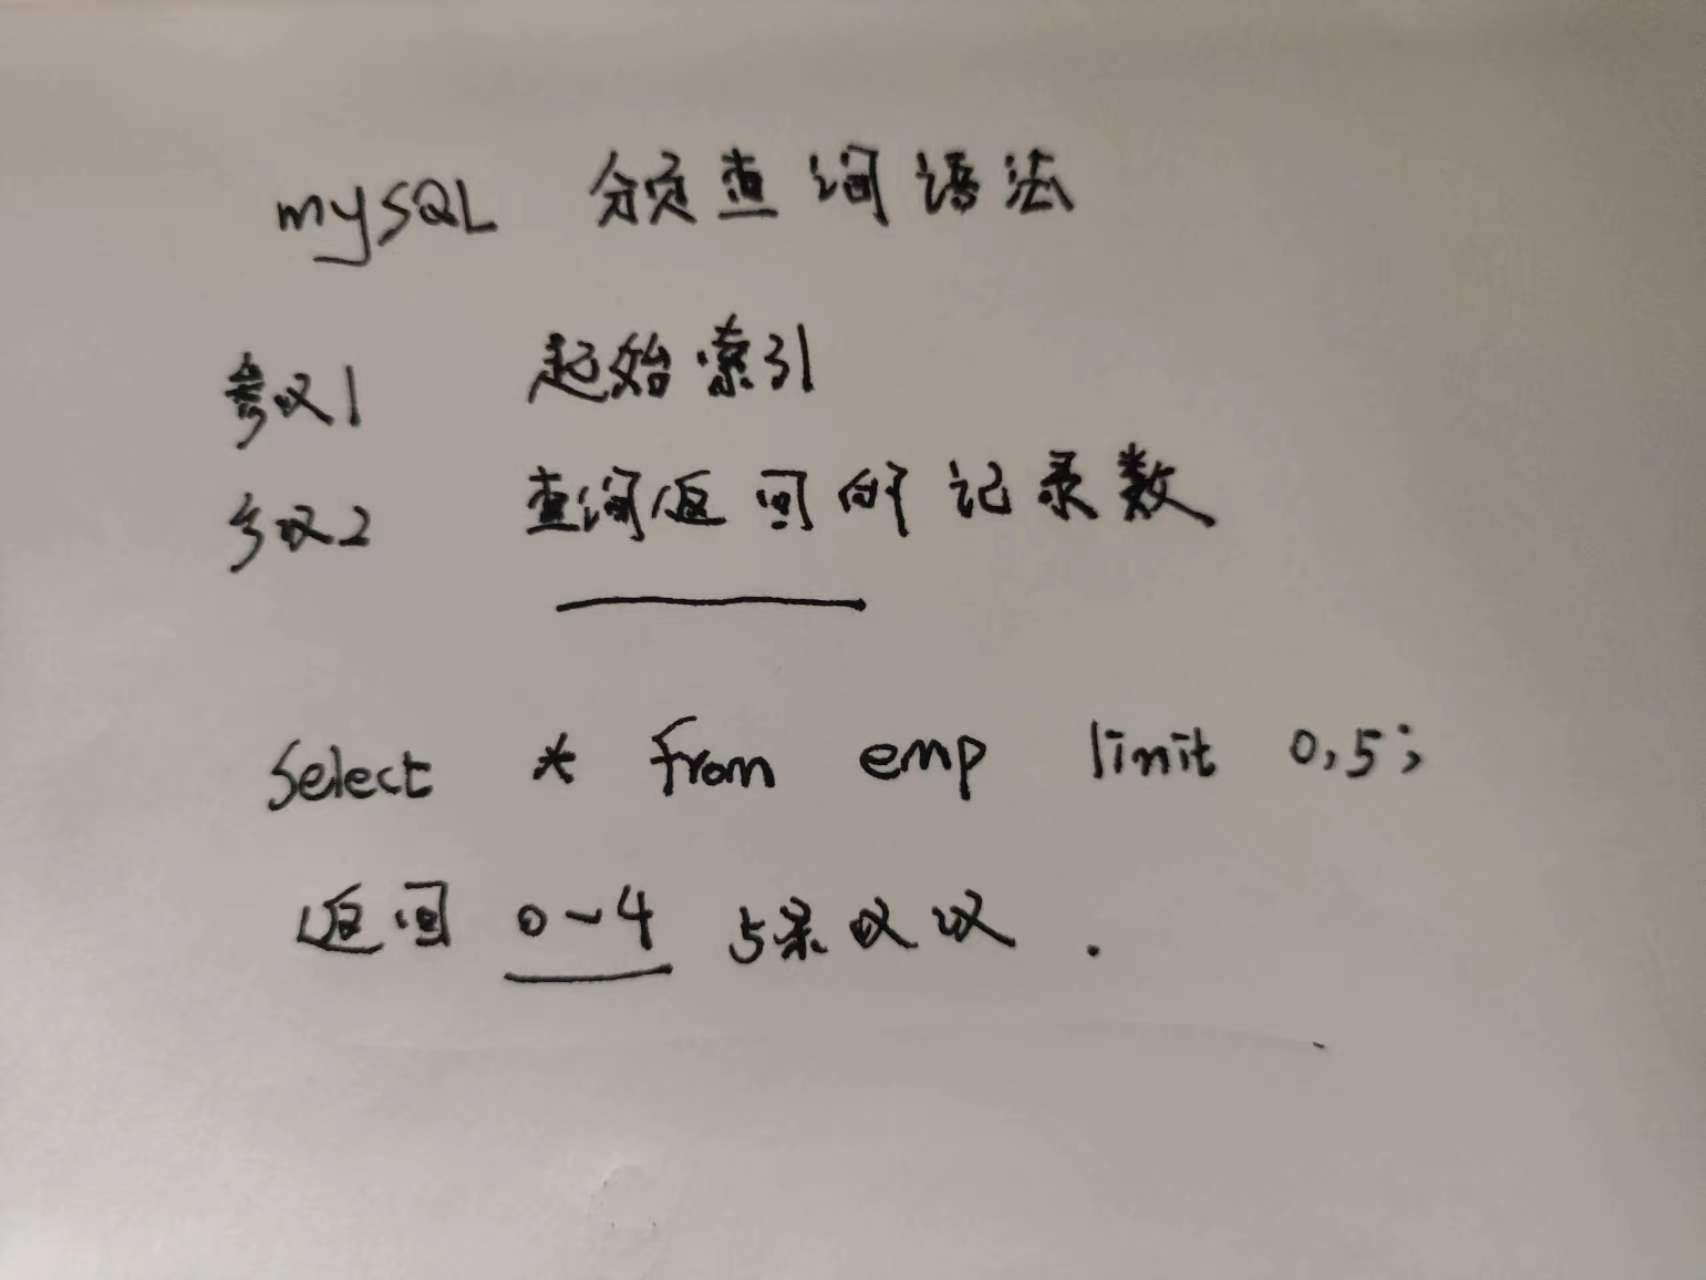 mySQL 分页查询语法
参数1 起始索引
参数2 查询返回的记录数
Select * from emp limit 0,5;
返回 0~4 5条数据.